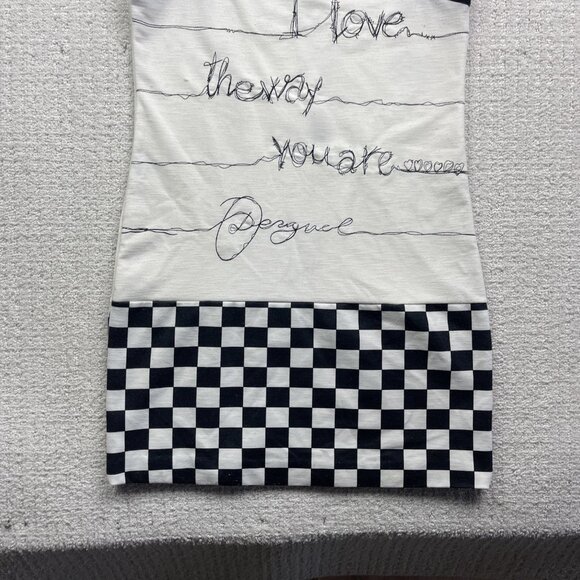 I love
the way
you are
Desigual